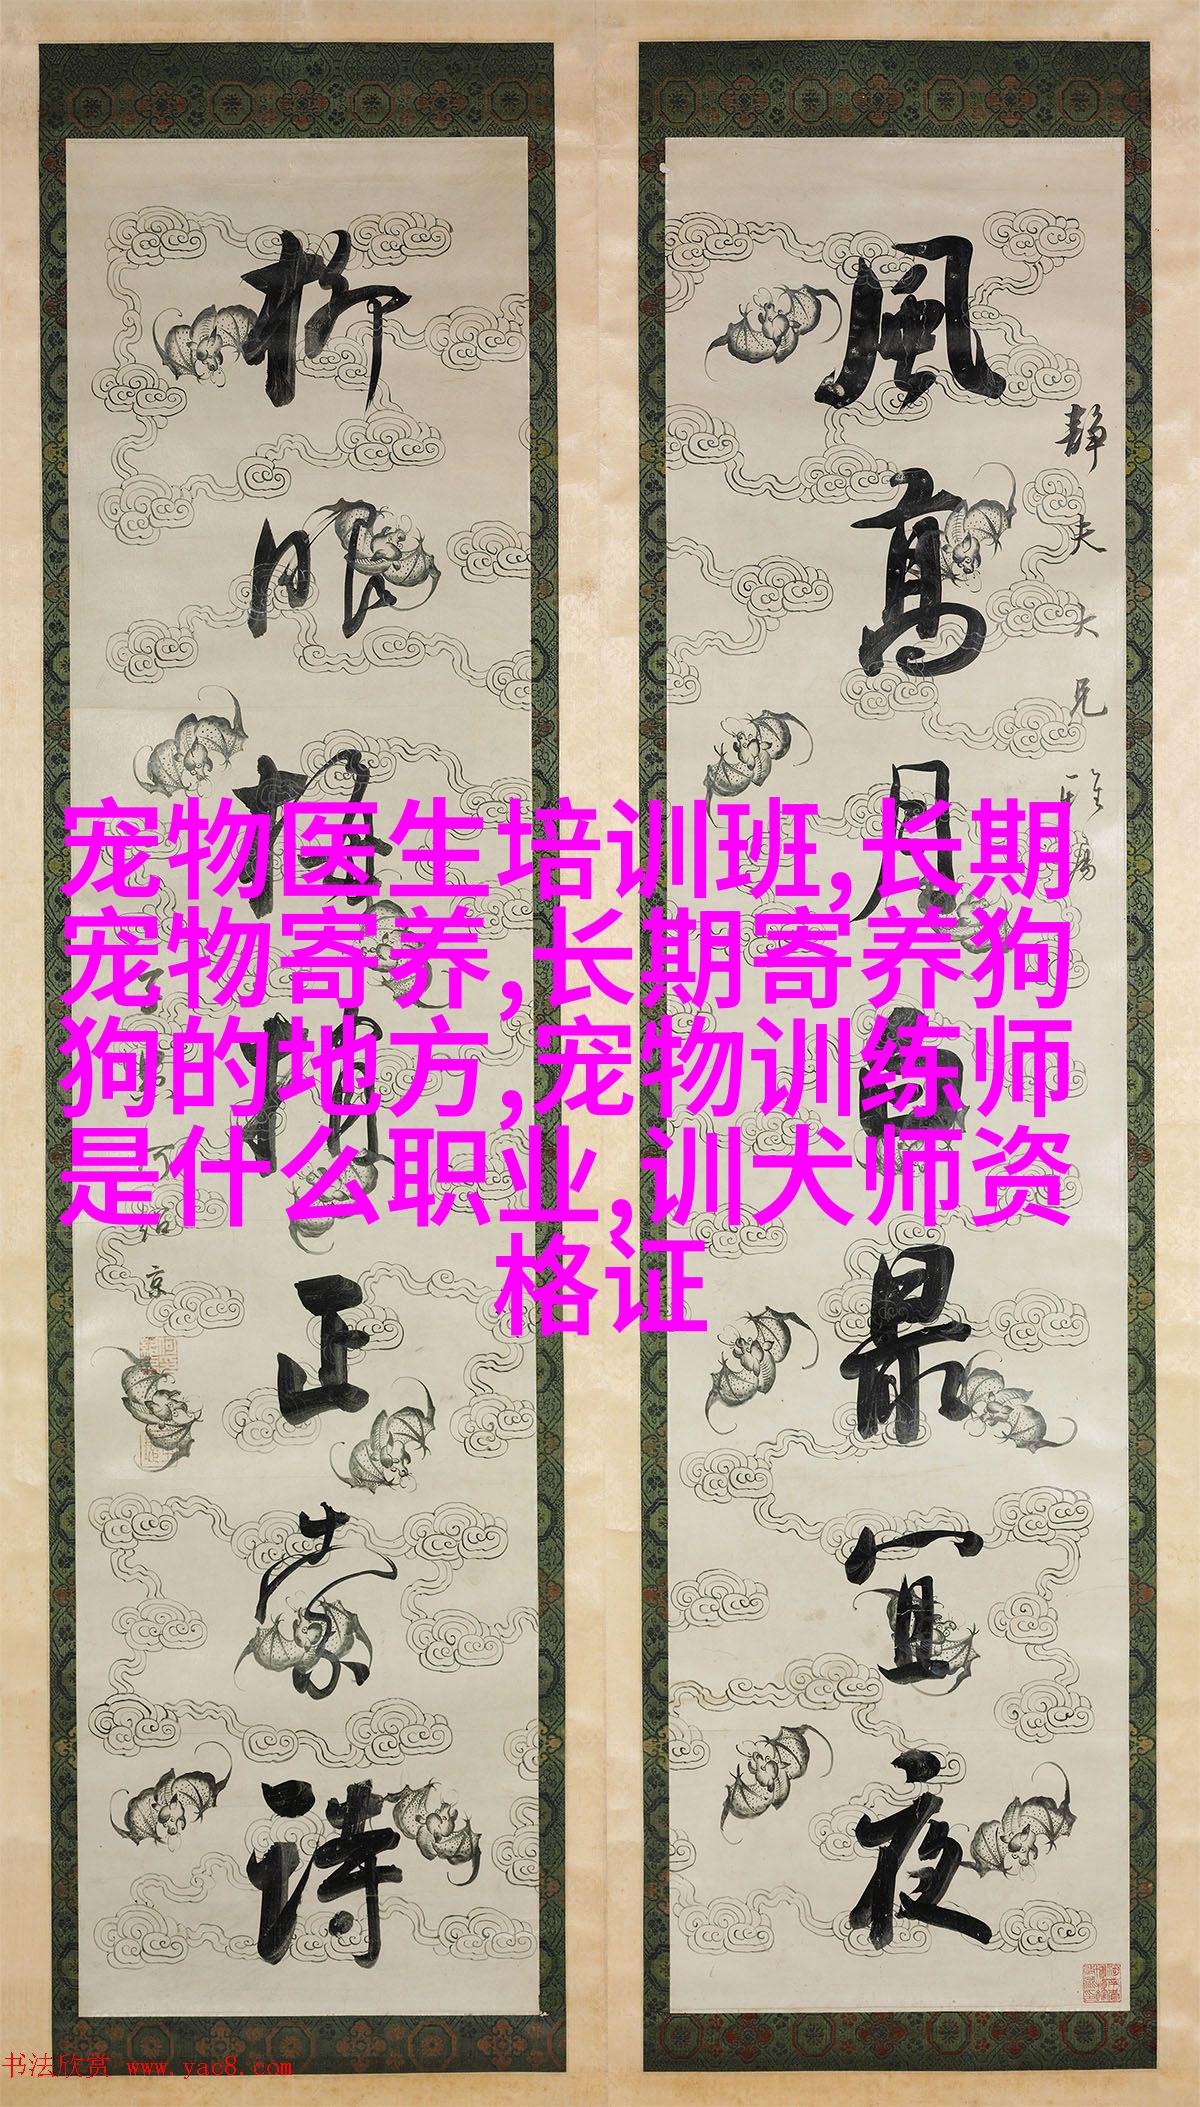 宠物医生培训班,长期
宠物寄养,长期寄养狗
狗的地方,宠物训练师
是什么职业,训犬师资
格证
靜夫大兄雅屬
風高月白最宜夜
柳眼梅梢正索詩
何紹京
书法欣赏 www.yac8.com